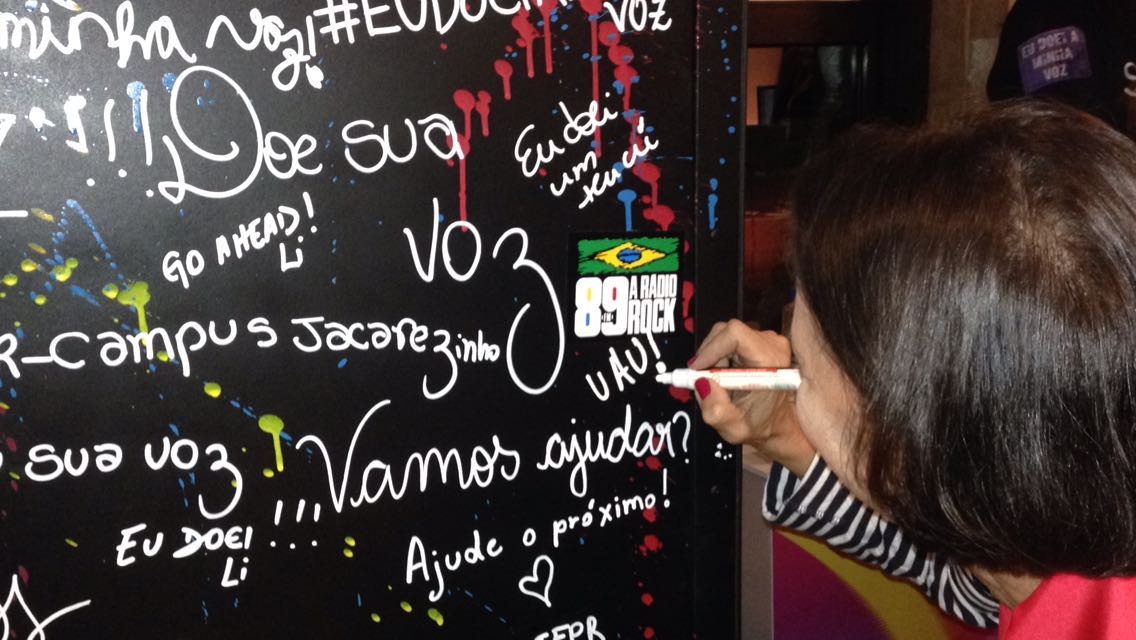 minha voz!
#EUDOEI
VOZ
EU DOEI A
MINHA
VOZ
!!!
Doe sua
voz
Eu doei
um
GO AHEAD!
Li
89
FM
A RADIO
ROCK
R-Campus Jacarezinho
UAU!
sua voz
!!!
Vamos ajudar?
EU DOEI
Li
Ajude o próximo!